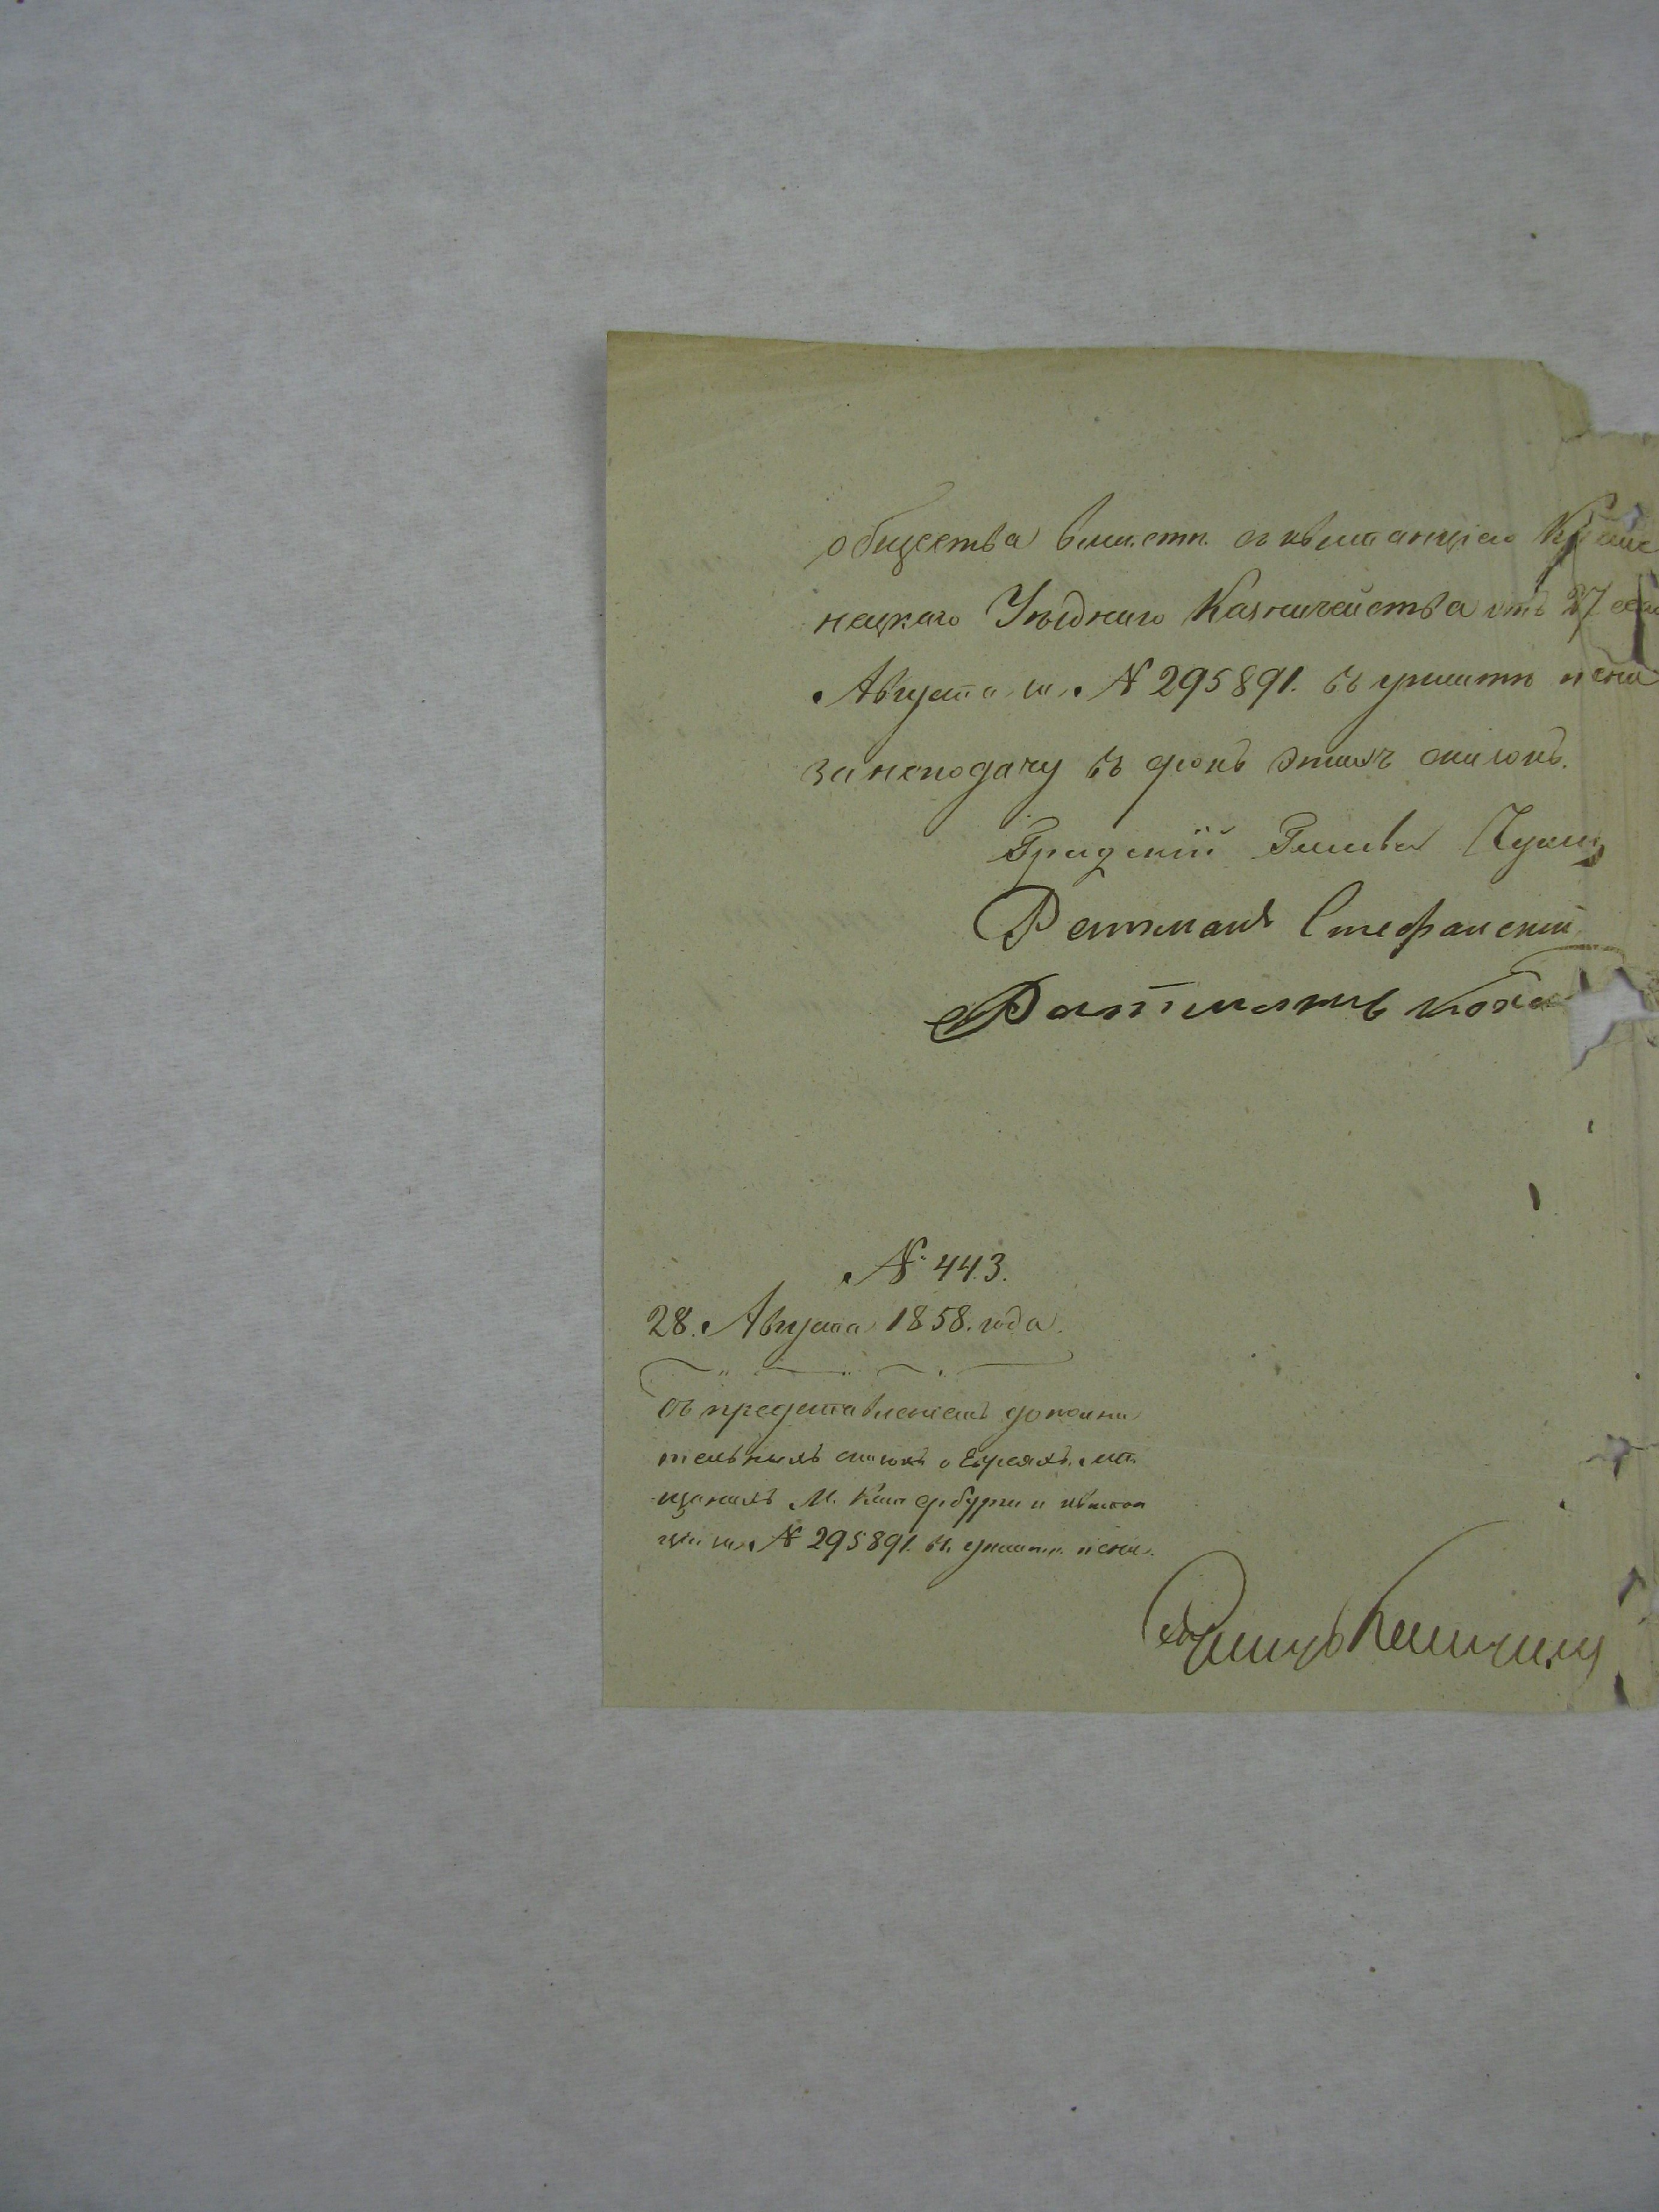 общества вместѣ съ квитанціею Креме
нецкаго Уѣзднаго Казначейства отъ 27 сего
Августа за № 295891. въ уплатѣ пени
за неподачу въ срокъ этихъ сказокъ.
Градскій Глава
Ратманъ Стефанскій
Ратманъ
№ 443.
28. Августа 1858. года.
Съ представленіемъ дополни
тельныхъ сказокъ о Евреяхъ мѣ
щанахъ М. Катербурга и квитан
ціи за № 295891. въ уплатѣ пени.